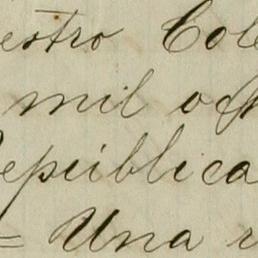 estro Cole
mil o
epública
= Una